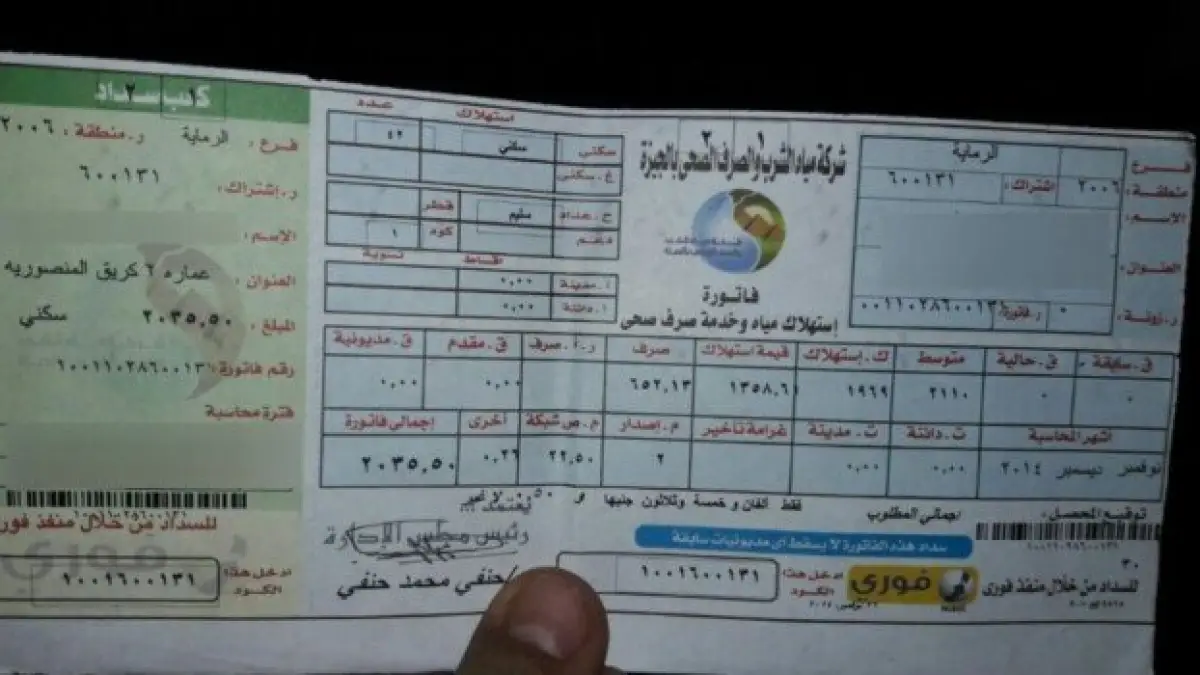 شركة مياه الشرب والصرف الصحى بالجيزة
فاتورة
إستهلاك مياه وخدمة صرف صحى
فرع الرماية
منطقة: ٢٠٠٦ إشتراك: ٦٠٠١٣١
الإسم:
العنوان:
ر.زونة: ٠ ر.فاتورة:
استهلاك عدد
سكنى سكني ٤٢
غ.سكنى
ح.عداد سليم قطر
كود ١
اقساط تسوية
أ.مدينة ٠,٠٠
أ.دائنة ٠,٠٠
ق.سابقة ق.حالية متوسط ك.إستهلاك قيمة استهلاك صرف ق.مقدم ق.مديونية
٠ ٠ ٢١١٠ ١٩٦٩ ١٣٥٨,٦١ ٦٥٢,١٣ ٠,٠٠ ٠,٠٠
اشهر المحاسبة ت.دائنة ت.مدينة غرامة تأخير م.إصدار م.ص شبكة أخرى إجمالي فاتورة
نوفمبر ديسمبر ٢٠١٤ ٠,٠٠ ٠,٠٠ ٢ ٢٢,٥٠ ٠,٢٦ ٢٠٣٥,٥٠
توقيع المحصل: اجمالي المطلوب فقط ألفان و خمسة وثلاثون جنيها و ٠,٥٠ لا غير
يعتمد
رئيس مجلس الإدارة
حنفي محمد حنفي
سداد هذه الفاتورة لا يسقط أى مديونيات سابقة
للسداد من خلال منفذ فورى
فوري
ادخل هذا الكود ١٠٠١٦٠٠١٣١
كعب سداد
فرع: الرماية ر.منطقة: ٢٠٠٦
ر.إشتراك: ٦٠٠١٣١
الإسم:
العنوان: عماره ٢ كريق المنصوريه
المبلغ: ٢٠٣٥,٥٠ سكني
رقم فاتورة: ١٠٠١١٠٢٨٦٠٠١٣١
فترة محاسبة
للسداد من خلال منفذ فورى
ادخل هذا الكود ١٠٠١٦٠٠١٣١